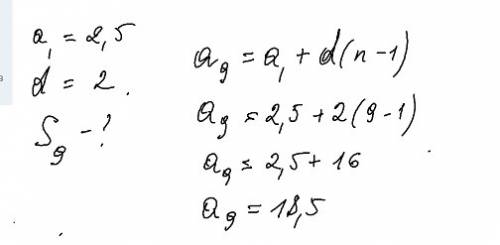 a₁ = 2,5
d = 2.
S₉ - ?
a₉ = a₁ + d(n-1)
a₉ = 2,5 + 2(9-1)
a₉ = 2,5 + 16
a₉ = 18,5